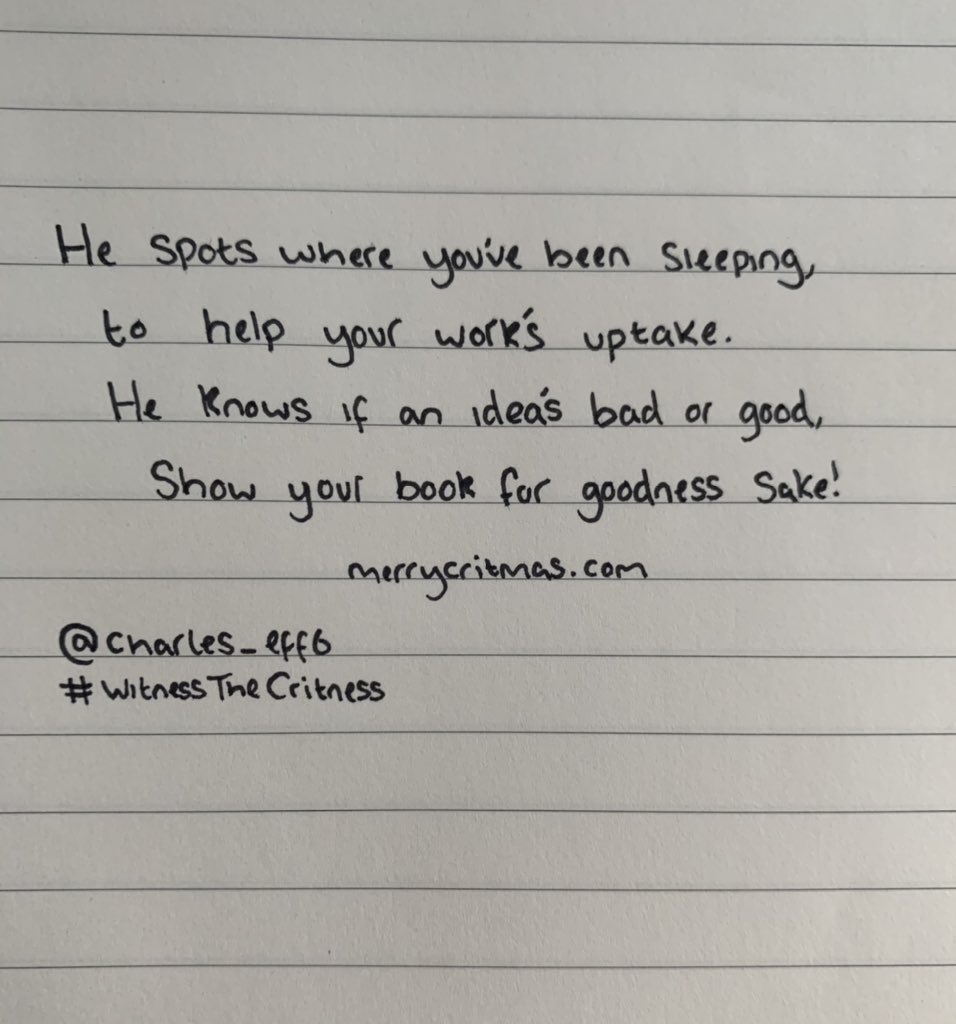 He spots where you've been sleeping,
to help your work's uptake.
He knows if an idea's bad or good,
Show your book for goodness sake!
merrycritmas.com
@charles_eff6
#WitnessTheCritness